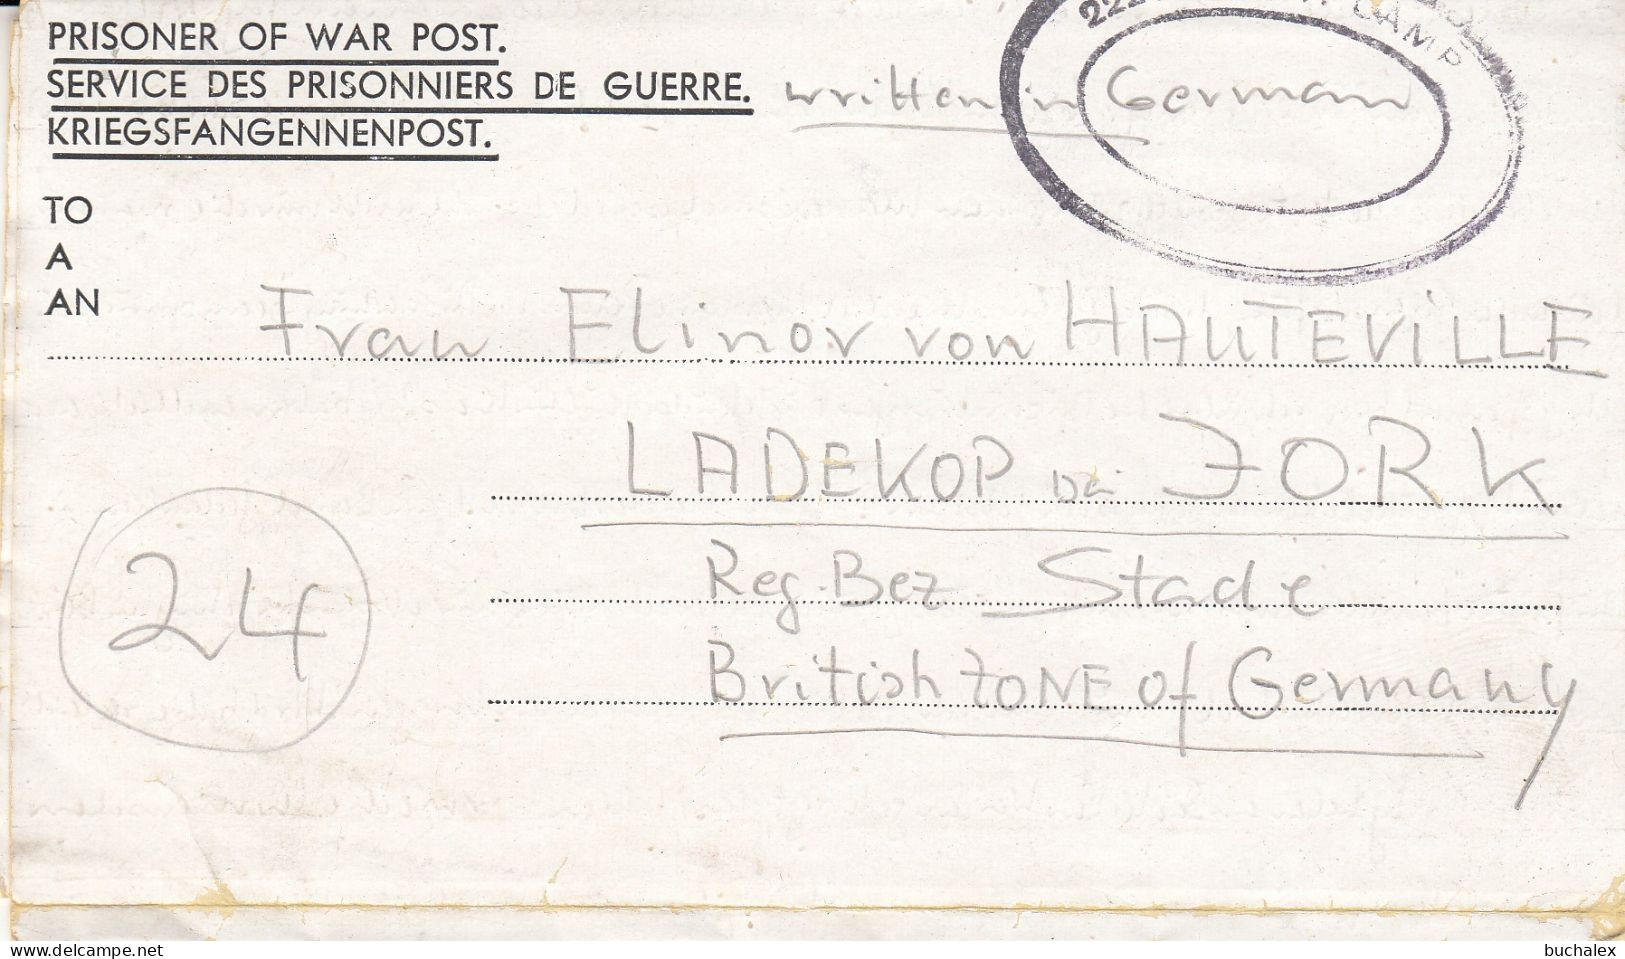 PRISONER OF WAR POST.
SERVICE DES PRISONNIERS DE GUERRE.
KRIEGSFANGENNENPOST.
written in German
CAMP
TO
A
AN
Frau Elinor von HAUTEVILLE
LADEKOP bei JORK
Reg. Bez Stade
British ZONE of Germany
24
www.delcampe.net
buchalex